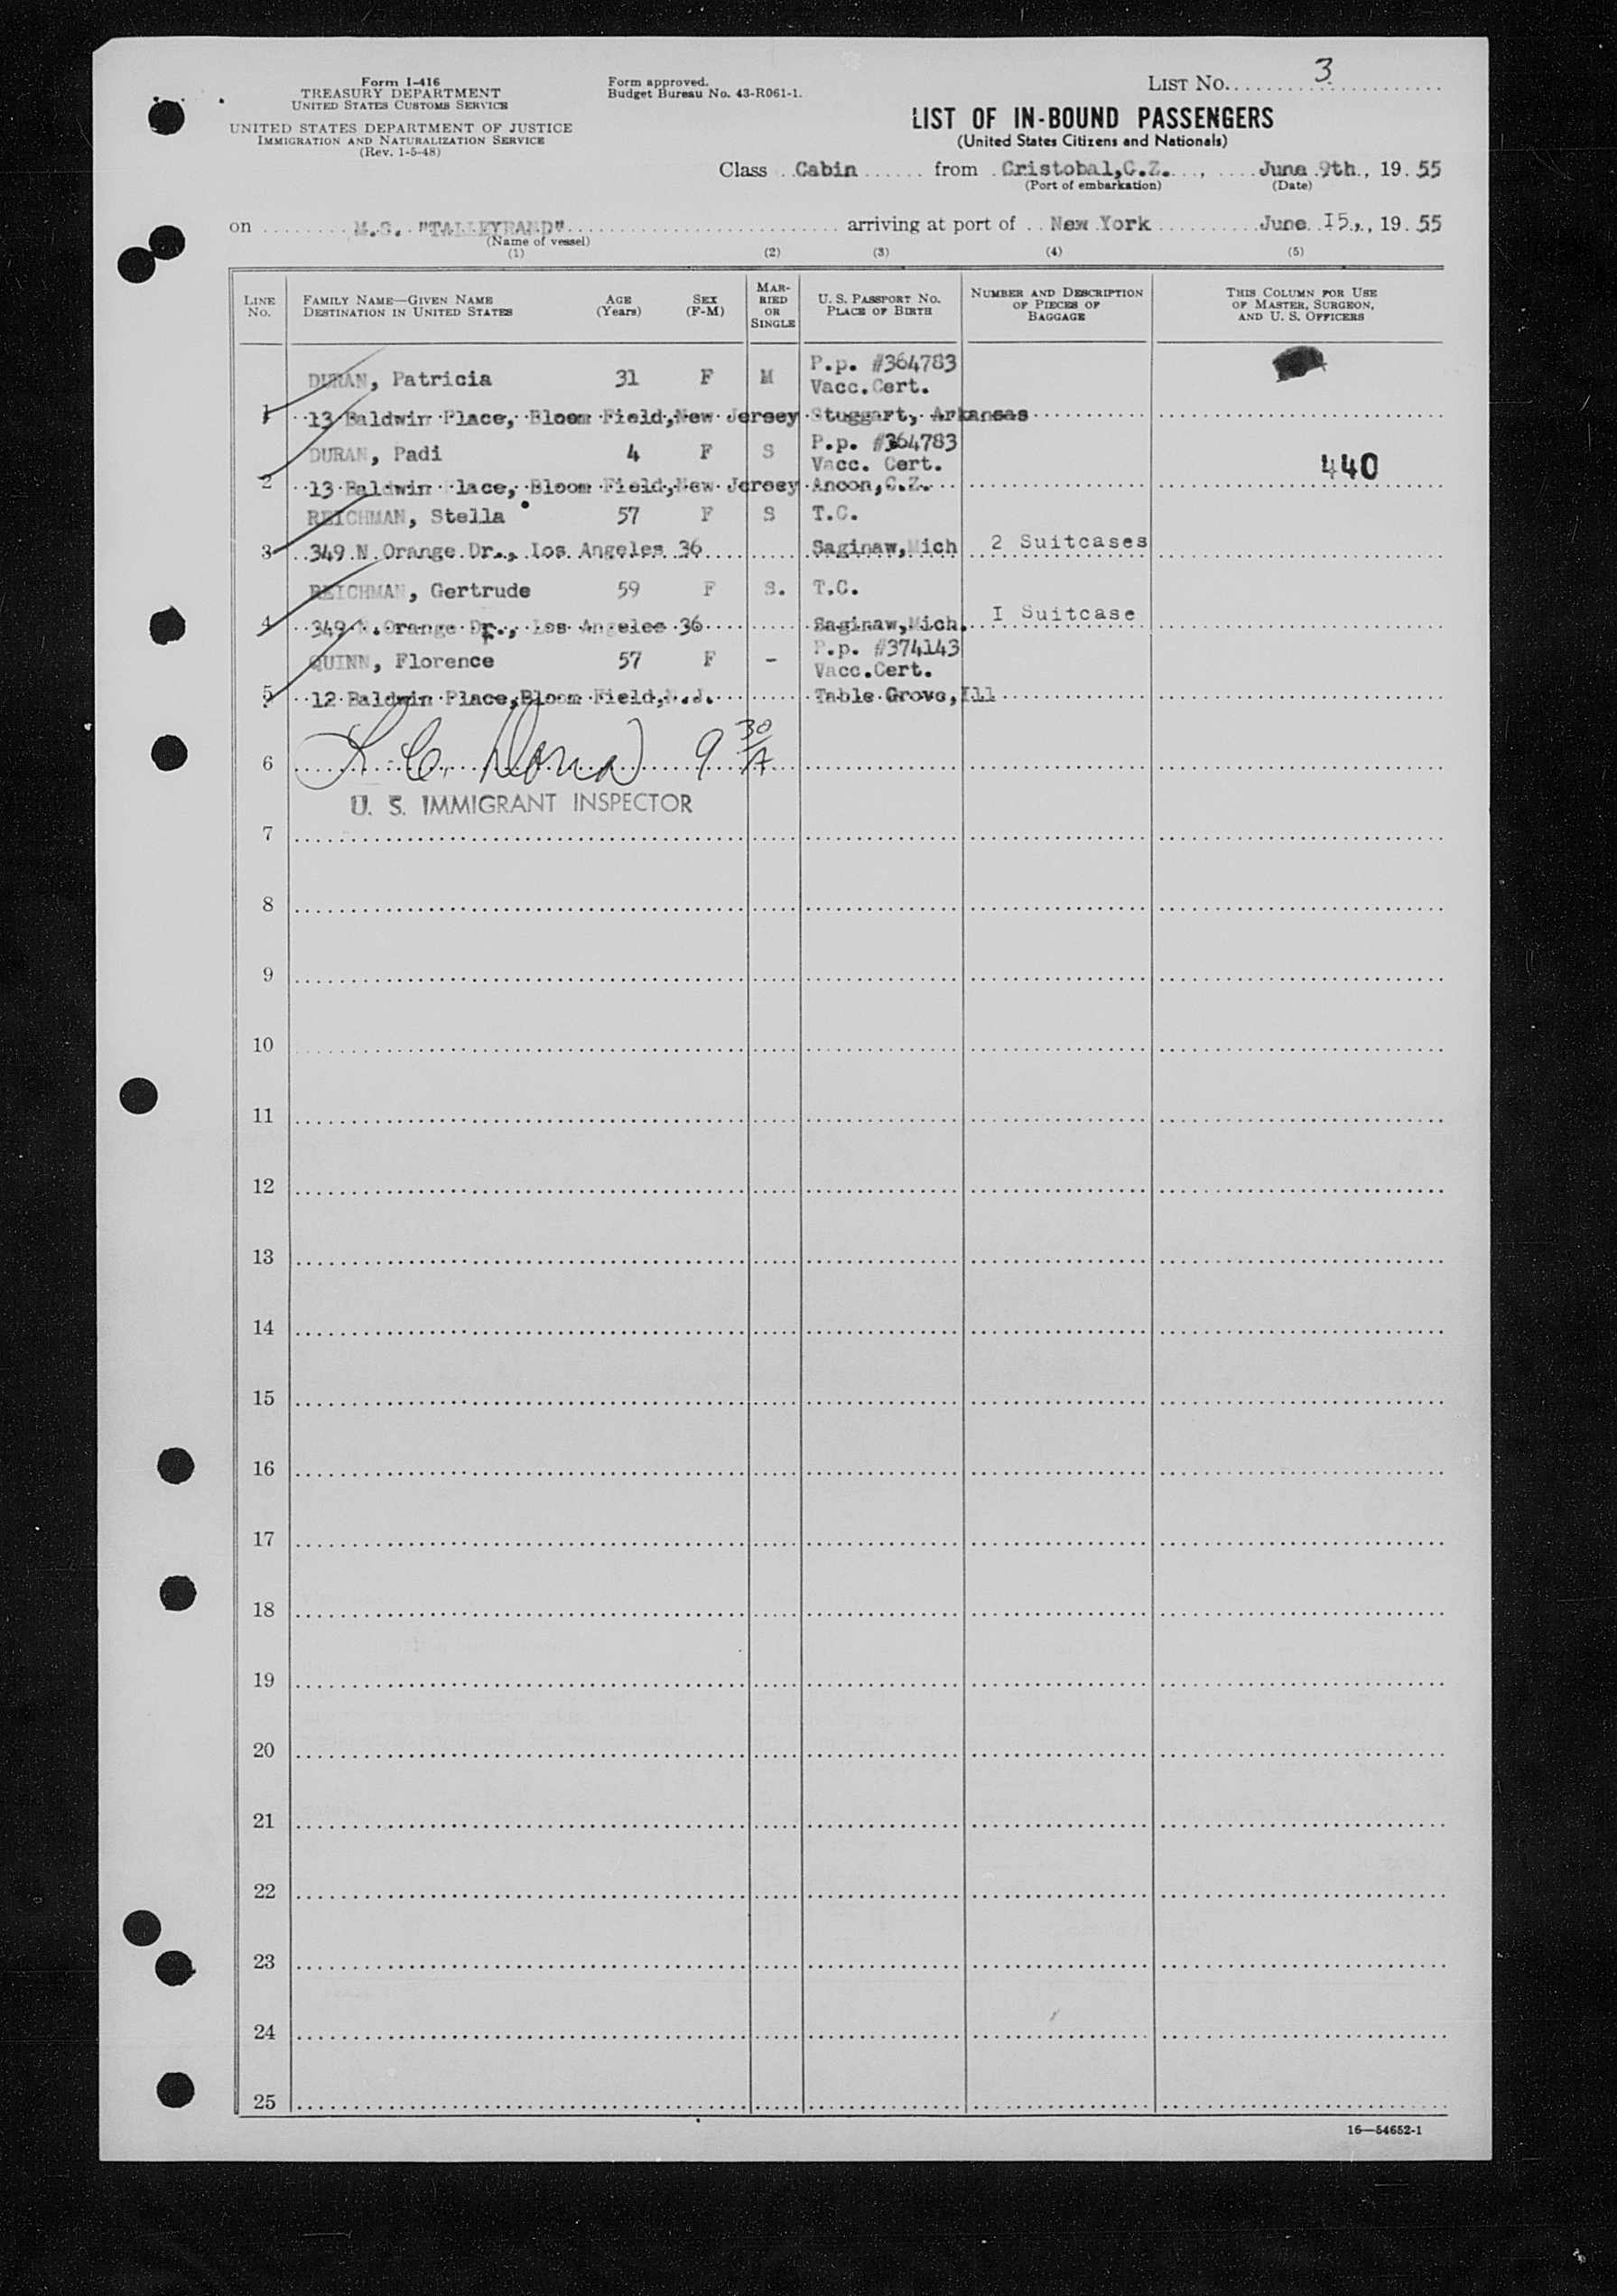 Form I-416
TREASURY DEPARTMENT
UNITED STATES CUSTOMS SERVICE
UNITED STATES DEPARTMENT OF JUSTICE
IMMIGRATION AND NATURALIZATION SERVICE
(Rev. 1-5-48)
Form approved.
Budget Bureau No. 43-R061-1.
LIST NO. 3
LIST OF IN-BOUND PASSENGERS
(United States Citizens and Nationals)
Class Cabin from Cristobal,C.Z., June 9th, 19 55
(Port of embarkation) (Date)
on M.S. "TALLEYRAND" arriving at port of New York June I5., 19 55
(Name of vessel)
(1) (2) (3) (4) (5)
LINE NO. FAMILY NAME—GIVEN NAME DESTINATION IN UNITED STATES AGE (Years) SEX (F-M) MARRIED OR SINGLE U. S. PASSPORT NO. PLACE OF BIRTH NUMBER AND DESCRIPTION OF PIECES OF BAGGAGE THIS COLUMN FOR USE OF MASTER, SURGEON, AND U. S. OFFICERS
DURAN, Patricia 31 F M P.p. #364783
Vacc.Cert.
1 13 Baldwin Place, Bloom Field,New Jersey Stuggart, Arkansas
DURAN, Padi 4 F S P.p. #364783
Vacc. Cert.
440
2 13 Baldwin Place, Bloom Field,New Jersey Ancon,C.Z.
REICHMAN, Stella 57 F S T.C.
3 349 N Orange Dr., Los Angeles 36 Saginaw,Mich 2 Suitcases
REICHMAN, Gertrude 59 F S. T.C.
4 349 N.Orange Dr., Los Angeles 36 Saginaw,Mich. I Suitcase
QUINN, Florence 57 F - P.p. #374143
Vacc.Cert.
5 12 Baldwin Place,Bloom Field,N.J. Table Grove,Ill
6 9 30 A
U. S. IMMIGRANT INSPECTOR
7
8
9
10
11
12
13
14
15
16
17
18
19
20
21
22
23
24
25
16—54652-1